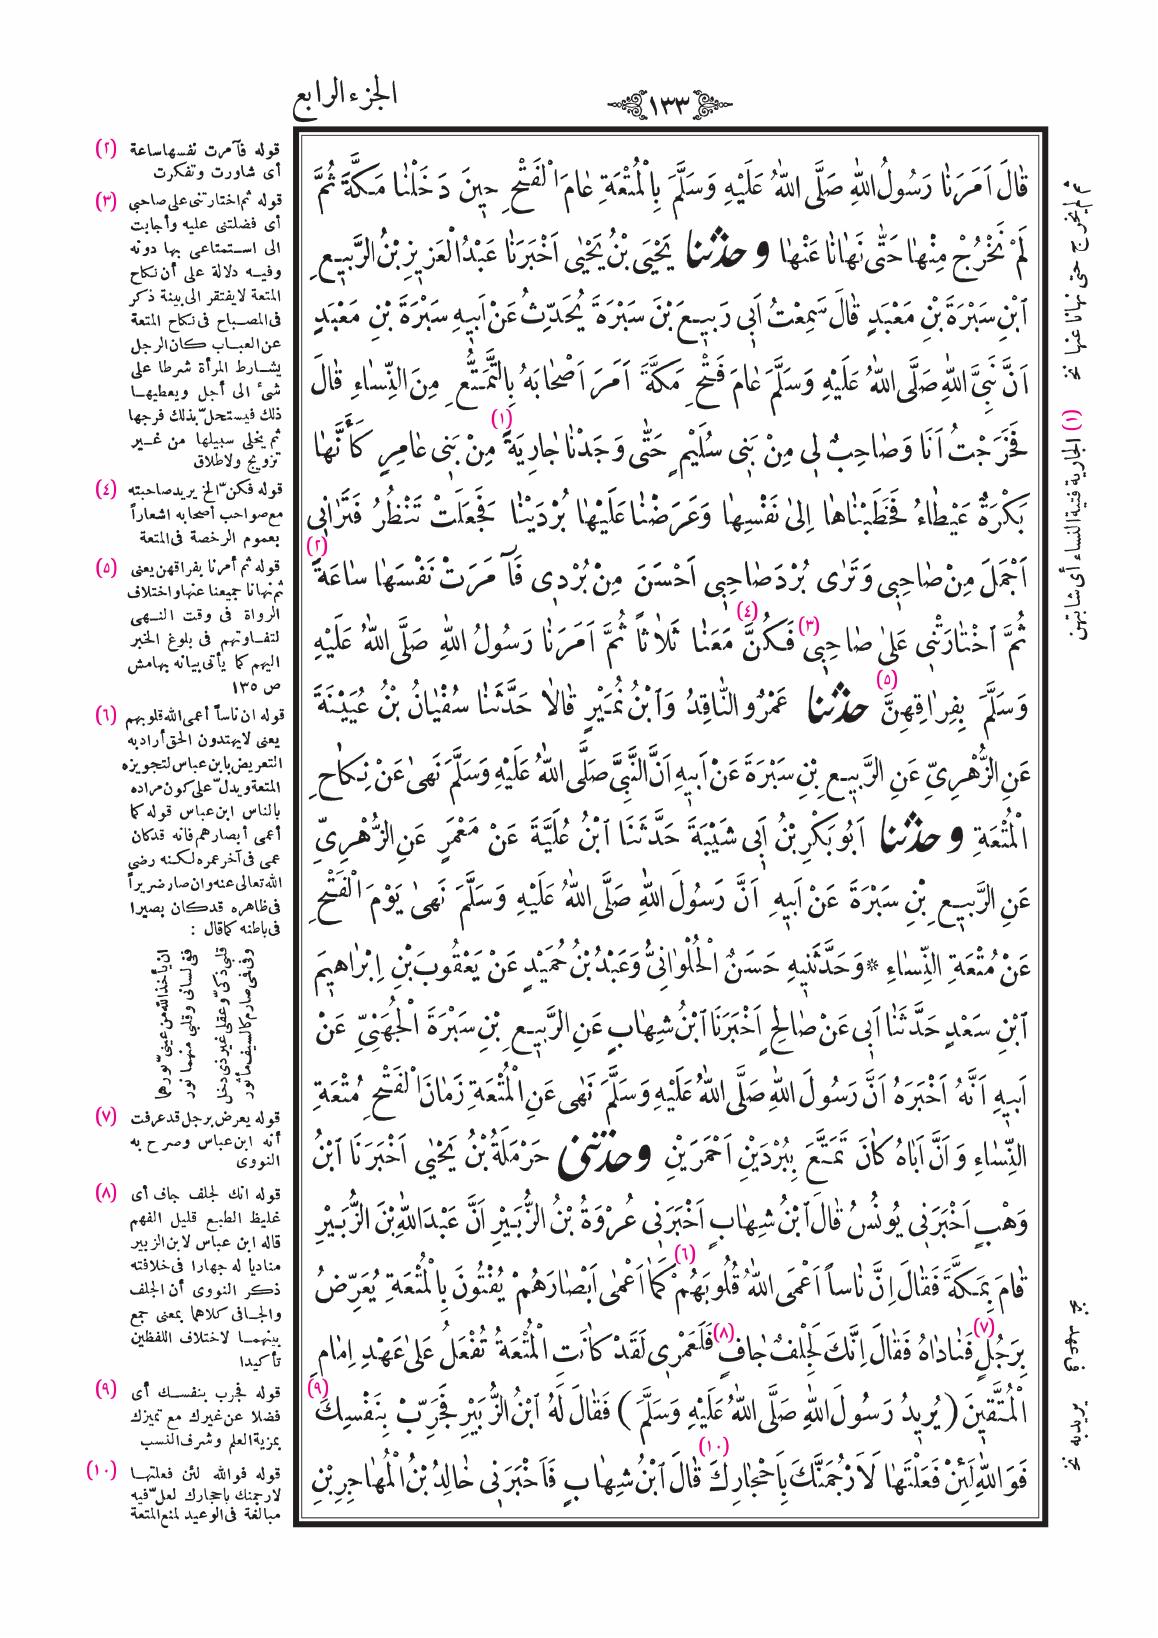 الجزء الرابع
١٣٣
قَالَ اَمَرَنَا رَسُولُ اللهِ صَلَّى اللهُ عَلَيْهِ وَسَلَّمَ بِالْمُتْعَةِ عَامَ الْفَتْحِ حِينَ دَخَلْنَا مَكَّةَ ثُمَّ
لَمْ نَخْرُجْ مِنْهَا حَتّٰى نَهَانَا عَنْهَا وحَدَّثَنَا يَحْيَى بْنُ يَحْيٰى اَخْبَرَنَا عَبْدُ الْعَزِيزِ بْنُ الرَّبِيعِ
ابْنِ سَبْرَةَ بْنِ مَعْبَدٍ قَالَ سَمِعْتُ اَبِي رَبِيعَ بْنَ سَبْرَةَ يُحَدِّثُ عَنْ اَبِيهِ سَبْرَةَ بْنِ مَعْبَدٍ
اَنَّ نَبِيَّ اللهِ صَلَّى اللهُ عَلَيْهِ وَسَلَّمَ عَامَ فَتْحِ مَكَّةَ اَمَرَ اَصْحَابَهُ بِالتَّمَتُّعِ مِنَ النِّسَاءِ قَالَ
فَخَرَجْتُ اَنَا وَصَاحِبٌ لِي مِنْ بَنِي سُلَيْمٍ حَتّٰى وَجَدْنَا جَارِيَةً (١) مِنْ بَنِي عَامِرٍ كَأَنَّهَا
بَكْرَةٌ عَيْطَاءُ فَخَطَبْنَاهَا اِلىٰ نَفْسِهَا وَعَرَضْنَا عَلَيْهَا بُرْدَيْنَا فَجَعَلَتْ تَنْظُرُ فَتَرَانِي
اَجْمَلَ مِنْ صَاحِبِي وَتَرٰى بُرْدَ صَاحِبِي اَحْسَنَ مِنْ بُرْدِي فَآمَرَتْ نَفْسَهَا سَاعَةً (٢)
ثُمَّ اخْتَارَتْنِي عَلىٰ صَاحِبِي (٣) فَكُنَّ (٤) مَعَنَا ثَلَاثاً ثُمَّ اَمَرَنَا رَسُولُ اللهِ صَلَّى اللهُ عَلَيْهِ
وَسَلَّمَ بِفِرَاقِهِنَّ (٥) حَدَّثَنَا عَمْرٌو النَّاقِدُ وَابْنُ نُمَيْرٍ قَالَا حَدَّثَنَا سُفْيَانُ بْنُ عُيَيْنَةَ
عَنِ الزُّهْرِيِّ عَنِ الرَّبِيعِ بْنِ سَبْرَةَ عَنْ اَبِيهِ اَنَّ النَّبِيَّ صَلَّى اللهُ عَلَيْهِ وَسَلَّمَ نَهىٰ عَنْ نِكَاحِ
الْمُتْعَةِ وحَدَّثَنَا اَبُو بَكْرِ بْنُ اَبِي شَيْبَةَ حَدَّثَنَا ابْنُ عُلَيَّةَ عَنْ مَعْمَرٍ عَنِ الزُّهْرِيِّ
عَنِ الرَّبِيعِ بْنِ سَبْرَةَ عَنْ اَبِيهِ اَنَّ رَسُولَ اللهِ صَلَّى اللهُ عَلَيْهِ وَسَلَّمَ نَهىٰ يَوْمَ الْفَتْحِ
عَنْ مُتْعَةِ النِّسَاءِ * وَحَدَّثَنِيهِ حَسَنٌ الْحُلْوَانِيُّ وَعَبْدُ بْنُ حُمَيْدٍ عَنْ يَعْقُوبَ بْنِ اِبْرَاهِيمَ
ابْنِ سَعْدٍ حَدَّثَنَا اَبِي عَنْ صَالِحٍ اَخْبَرَنَا ابْنُ شِهَابٍ عَنِ الرَّبِيعِ بْنِ سَبْرَةَ الْجُهَنِيِّ عَنْ
اَبِيهِ اَنَّهُ اَخْبَرَهُ اَنَّ رَسُولَ اللهِ صَلَّى اللهُ عَلَيْهِ وَسَلَّمَ نَهٰى عَنِ الْمُتْعَةِ زَمَانَ الْفَتْحِ مُتْعَةِ
النِّسَاءِ وَاَنَّ اَبَاهُ كَانَ تَمَتَّعَ بِبُرْدَيْنِ اَحْمَرَيْنِ وحَدَّثَنِي حَرْمَلَةُ بْنُ يَحْيٰى اَخْبَرَنَا ابْنُ
وَهْبٍ اَخْبَرَنِي يُونُسُ قَالَ ابْنُ شِهَابٍ اَخْبَرَنِي عُرْوَةُ بْنُ الزُّبَيْرِ اَنَّ عَبْدَ اللهِ بْنَ الزُّبَيْرِ
قَامَ بِمَكَّةَ فَقَالَ اِنَّ نَاساً اَعْمَى اللهُ قُلُوبَهُمْ (٦) كَمَا اَعْمٰى اَبْصَارَهُمْ يُفْتُونَ بِالْمُتْعَةِ يُعَرِّضُ
بِرَجُلٍ (٧) فَنَادَاهُ فَقَالَ اِنَّكَ لَجِلْفٌ جَافٍ (٨) فَلَعَمْرِي لَقَدْ كَانَتِ الْمُتْعَةُ تُفْعَلُ عَلىٰ عَهْدِ اِمَامِ
الْمُتَّقِينَ ( يُرِيدُ رَسُولَ اللهِ صَلَّى اللهُ عَلَيْهِ وَسَلَّمَ ) فَقَالَ لَهُ ابْنُ الزُّبَيْرِ فَجَرِّبْ بِنَفْسِكَ (٩)
فَوَاللهِ لَئِنْ فَعَلْتَهَا لَاَرْجُمَنَّكَ بِاَحْجَارِكَ (١٠) قَالَ ابْنُ شِهَابٍ فَاَخْبَرَنِي خَالِدُ بْنُ الْمُهَاجِرِ بْنِ
ثم لم يخرج حتى نهانا عنها نخ
(١) الجارية فتية النساء أى شابتهن
فى عهد نخ
يريد به نخ
(٢) قوله فآمرت نفسها ساعة
أى شاورت وتفكرت
(٣) قوله ثم اختارتنى على صاحبى
أى فضلتنى عليه وأجابت
الى استمتاعى بها دونه
وفيه دلالة على أن نكاح
المتعة لا يفتقر الى بينة ذكر
فى المصباح فى نكاح المتعة
عن العباب كان الرجل
يشارط المرأة شرطا على
شئ الى أجل ويعطيها
ذلك فيستحل بذلك فرجها
ثم يخلى سبيلها من غير
تزويج ولا طلاق
(٤) قوله فكنّ الخ يريد صاحبته
مع صواحب أصحابه اشعاراً
بعموم الرخصة فى المتعة
(٥) قوله ثم أمرنا بفراقهن يعنى
ثم نهانا جميعنا عنها واختلاف
الرواة فى وقت النهى
لتفاوتهم فى بلوغ الخبر
اليهم كما يأتى بيانه بهامش
ص ١٣٥
(٦) قوله ان ناساً أعمى الله قلوبهم
يعنى لا يهتدون الحق أراد به
التعريض بابن عباس لتجويزه
المتعة ويدلّ على كون مراده
بالناس ابن عباس قوله كما
أعمى أبصارهم فانه قد كان
عمى فى آخر عمره لكنه رضى
الله تعالى عنه وان صار ضريراً
فى ظاهره قد كان بصيرا
فى باطنه كما قال :
ان يأخذ الله من عينىّ نورهما
ففى لسانى وقلبى منهما نور
قلبى ذكىّ وعقلى غير ذى دخل
وفى فمى صارم كالسيف مأثور
(٧) قوله يعرض برجل قد عرفت
أنه ابن عباس وصرح به
النووى
(٨) قوله انك لجلف جاف أى
غليظ الطبع قليل الفهم
قاله ابن عباس لابن الزبير
مناديا له جهارا فى خلافته
ذكر النووى أن الجلف
والجافى كلاهما بمعنى جمع
بينهما لاختلاف اللفظين
تأكيدا
(٩) قوله فجرب بنفسك أى
فضلا عن غيرك مع تميزك
بمزية العلم وشرف النسب
(١٠) قوله فوالله لئن فعلتها
لارجمنك باحجارك لعلّ فيه
مبالغة فى الوعيد لمنع المتعة